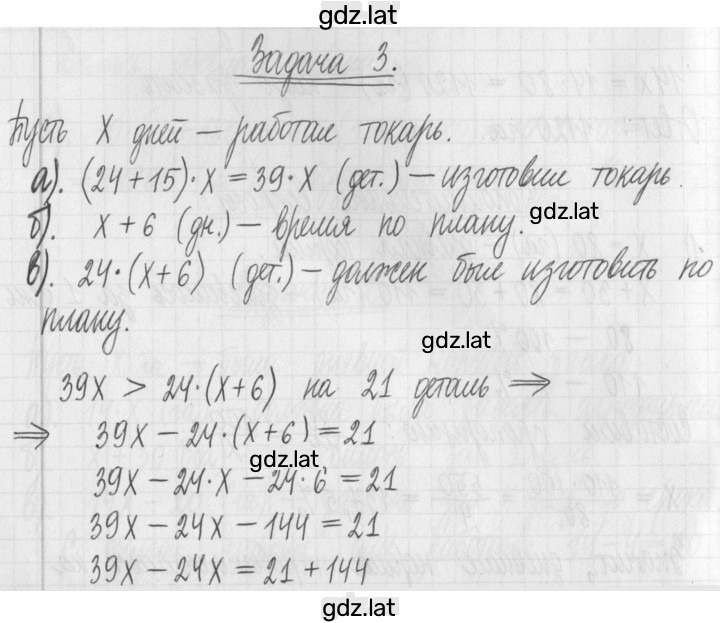 gdz.lat
Задача 3.
Пусть х дней — работал токарь.
а). (24+15)·х = 39·х (дет.) — изготовил токарь.
gdz.lat
б). х+6 (дн.) — время по плану.
в). 24·(х+6) (дет.) — должен был изготовить по
плану.
gdz.lat
39х > 24·(х+6) на 21 деталь ⇒
⇒ 39х − 24·(х+6) = 21
gdz.lat
39х − 24·х − 24·6 = 21
39х − 24х − 144 = 21
39х − 24х = 21 + 144
gdz.lat